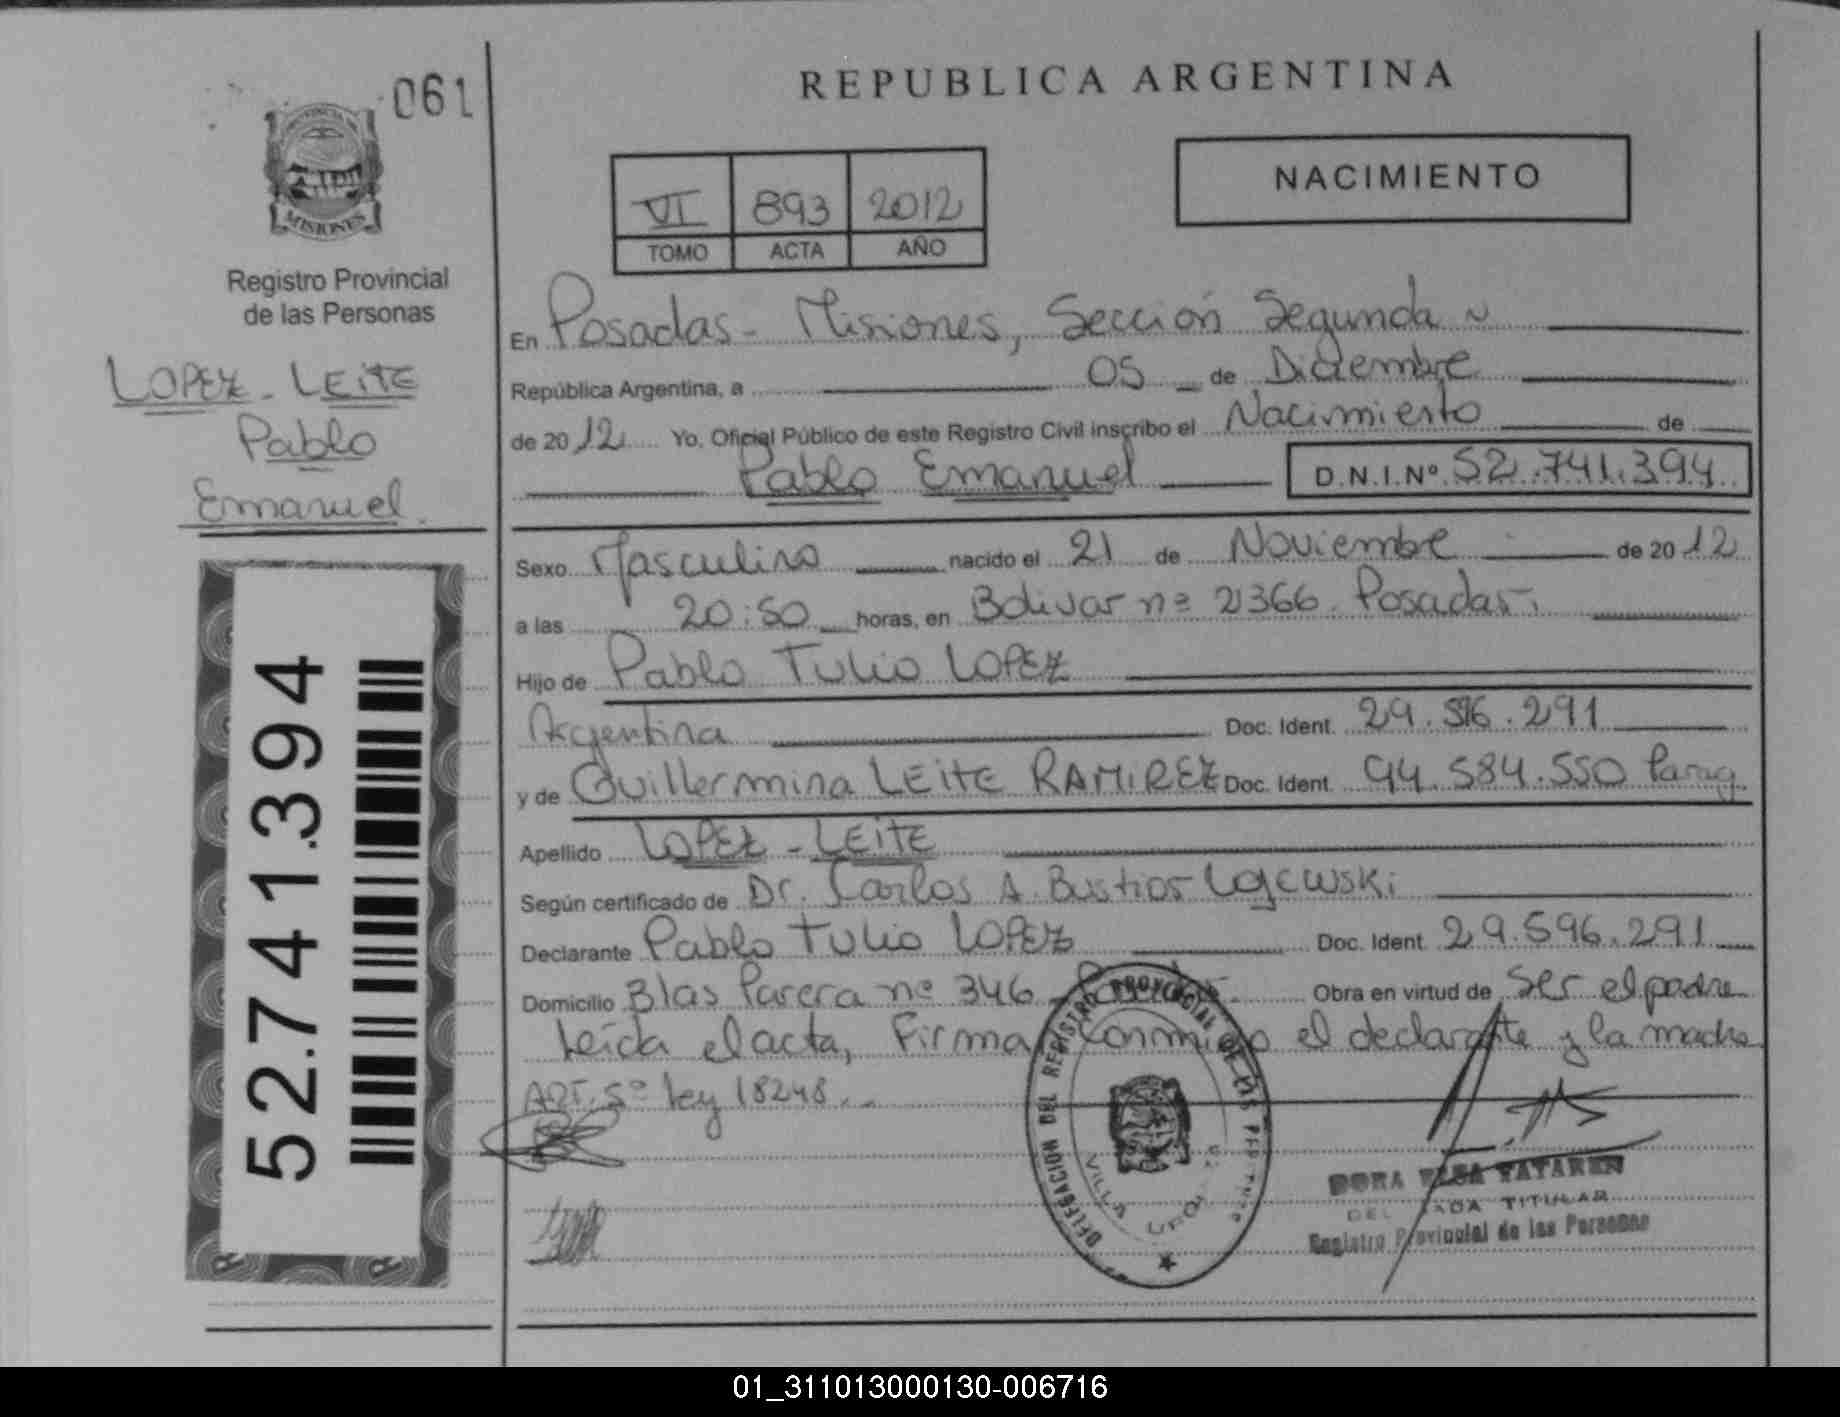 061
PROVINCIA DE
MISIONES
Registro Provincial
de las Personas
LOPEZ - LEITE
Pablo
Emanuel.
52.741.394
REPUBLICA ARGENTINA
VI 893 2012
TOMO ACTA AÑO
NACIMIENTO
En Posadas - Misiones, Sección Segunda
República Argentina, a 05 de Diciembre
de 2012 Yo, Oficial Público de este Registro Civil inscribo el Nacimiento de
Pablo Emanuel D.N.I.Nº 52.741.394
Sexo Masculino nacido el 21 de Noviembre de 2012
a las 20:50 horas, en Bolivar nº 2366 Posadas.
Hijo de Pablo Tulio LOPEZ
Argentina Doc. Ident. 29.596.291
y de Guillermina LEITE RAMIREZ Doc. Ident. 94.584.550 Parag
Apellido LOPEZ - LEITE
Según certificado de Dr. Carlos A. Bustios
Declarante Pablo Tulio LOPEZ Doc. Ident. 29.596.291
Domicilio Blas Parera nº 346 - Obra en virtud de ser el padre
Leída el acta, Firma Conmigo el declarante y la madre
ART. 5º Ley 18248.
DELEGACION DEL REGISTRO PROVINCIAL DE LAS PERSONAS
VILLA
TITULAR
Registro Provincial de las Personas
01_311013000130-006716